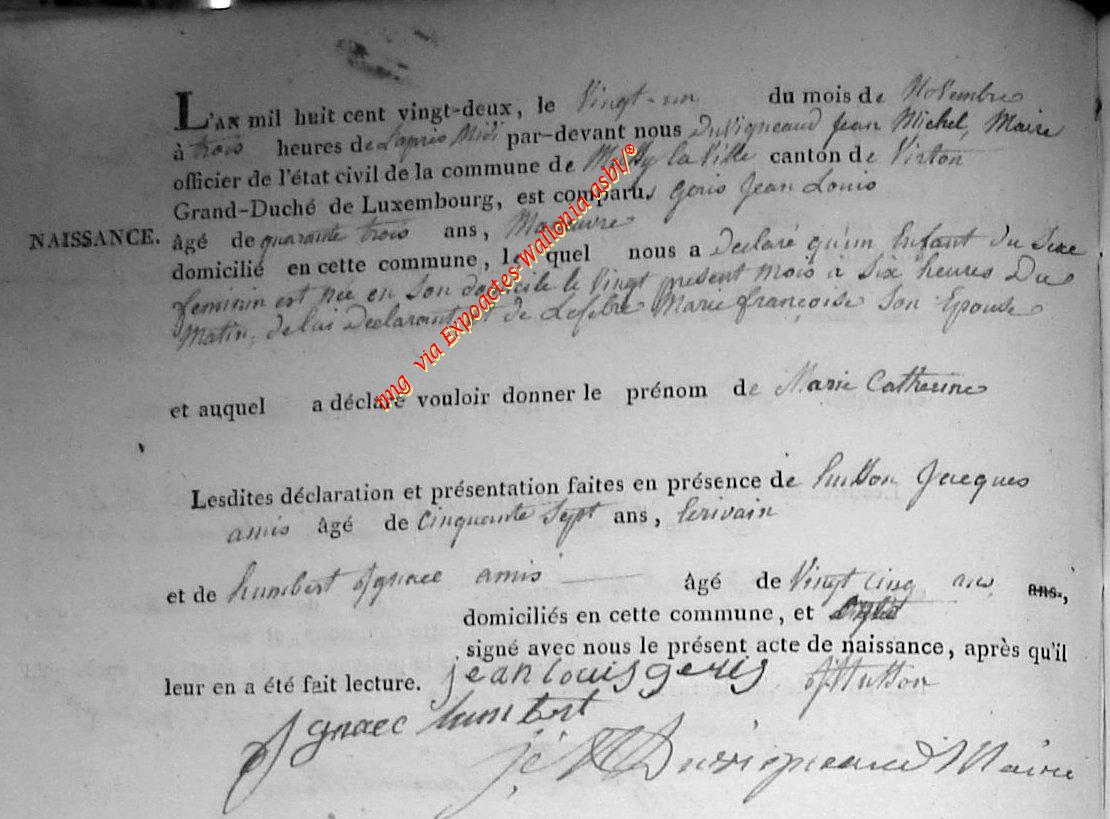 L'AN mil huit cent vingt-deux, le Vingt-un du mois de Novembre
à trois heures de L'apres Midi par-devant nous Duvigneaud Jean Michel, Maire
officier de l'état civil de la commune de la Ville canton de Virton
Grand-Duché de Luxembourg, est comparu, geris Jean Louis
NAISSANCE. âgé de quarante trois ans, Manoeuvre
domicilié en cette commune, lequel nous a Declaré qu'un Enfant Du Sexe
feminin est née en Son domicile le Vingt present mois à Six heures Du
Matin, de lui Declarant et de Lefebre Marie françoise Son Epouse
et auquel a déclaré vouloir donner le prénom de Marie Catherine
Lesdites déclaration et présentation faites en présence de hutson Jacques
amis âgé de Cinquante Sept ans, Ecrivain
et de humbert Ignace amis âgé de Vingt cinq ans ans,
domiciliés en cette commune, et
signé avec nous le présent acte de naissance, après qu'il
leur en a été fait lecture. jean louis geris JHutson
Ignace humbert
Duvigneaud Maire
img via Expoactes-Wallonia asbl/®